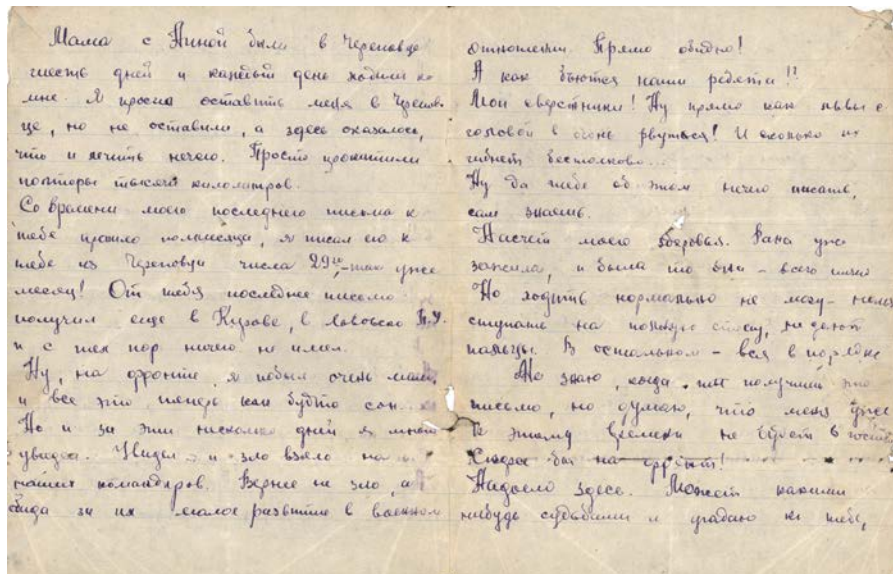 Мама с Ниной были в Череповце
шесть дней и каждый день ходили ко
мне. Я просил оставить меня в Черепов-
це, но не оставили, а здесь оказалось,
что и лечить нечего. Просто прокатили
полторы тысячи километров.
Со времени моего последнего письма к
тебе прошло полмесяца, я писал его к
тебе из Череповца числа 29го, так уже
месяц! От тебя последнее письмо
получил еще в Кирове, в
и с тех пор ничего не имел.
Ну, на фронте я побыл очень мало,
и все это теперь как будто сон.
Но и за эти несколько дней я много
увидел. Увидел и зло взяло на
наших командиров. Вернее не зло, а
обида за их малое развитие в военном
отношении. Прямо обидно!
А как бьются наши ребята!!
Мои сверстники! Ну прямо как львы с
головой в огонь рвутся! И сколько их
гибнет бестолково...
Ну да тебе об этом нечего писать,
сам знаешь.
Насчет моего здоровья. Рана уже
зажила, и была то она – всего
Но ходить нормально не могу –
ступать на полную стопу, не дают
пальцы. В остальном – все в порядке
Не знаю, когда ты получишь это
письмо, но думаю, что меня уже
к этому времени не будет в госп
Скорее бы на фронт!
Надоело здесь. Может какими
нибудь судьбами и угадаю к тебе,